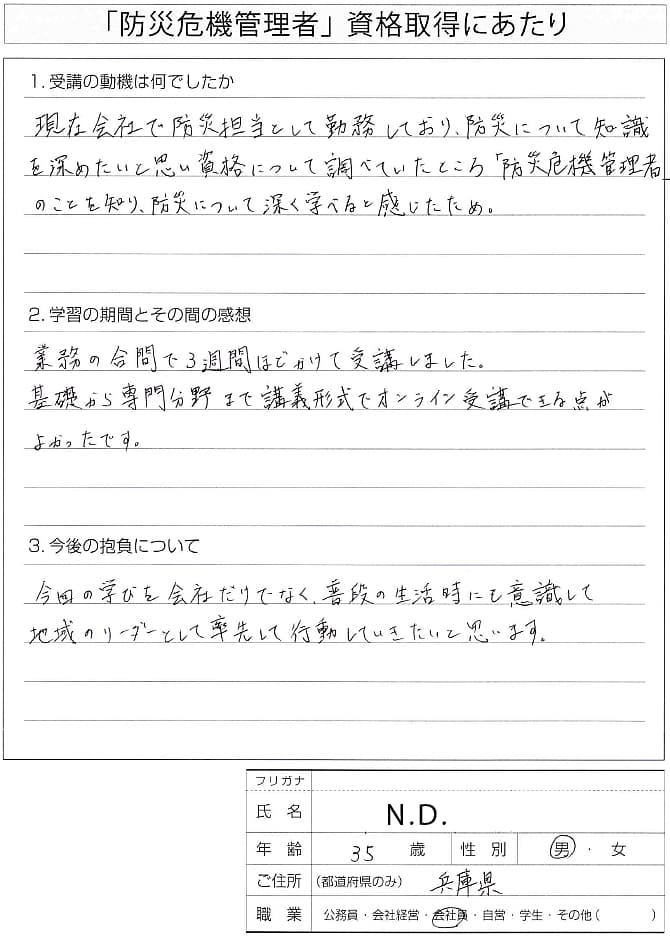 「防災危機管理者」資格取得にあたり
1. 受講の動機は何でしたか
現在会社で防災担当として勤務しており、防災について知識
を深めたいと思い資格について調べていたところ「防災危機管理者」
のことを知り、防災について深く学べると感じたため。
2. 学習の期間とその間の感想
業務の合間で3週間ほどかけて受講しました。
基礎から専門分野まで講義形式でオンライン受講できる点が
よかったです。
3. 今後の抱負について
今回の学びを会社だけでなく、普段の生活時にも意識して
地域のリーダーとして率先して行動していきたいと思います。
フリガナ
氏名 N.D.
年齢 35 歳 性別 男・女
ご住所 (都道府県のみ) 兵庫県
職業 公務員・会社経営・会社員・自営・学生・その他( )